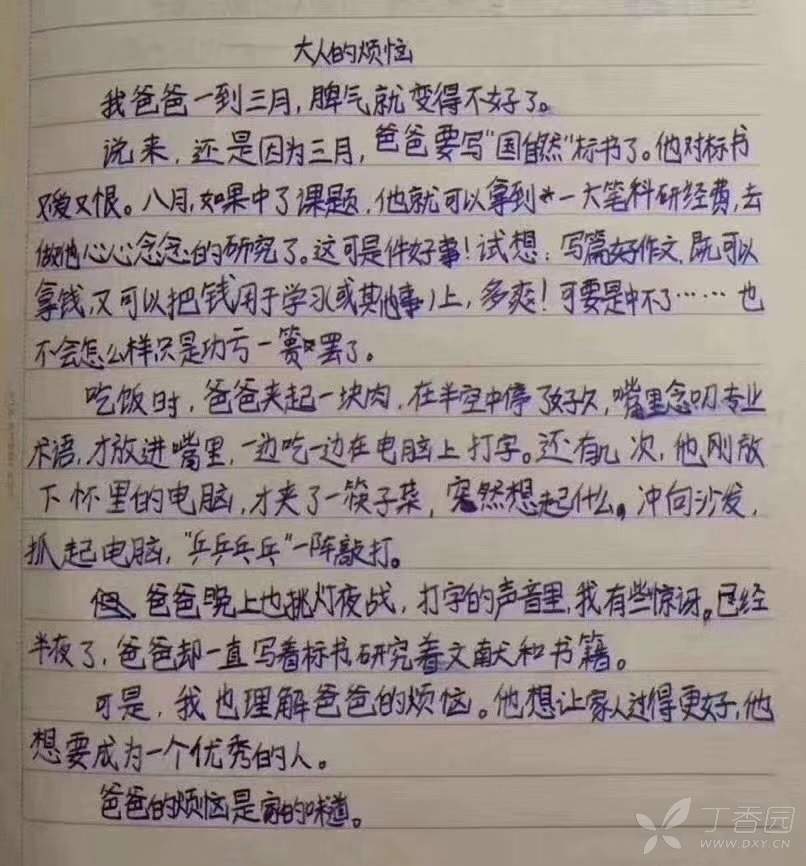 大人的烦恼
我爸爸一到三月，脾气就变得不好了。
说来，还是因为三月，爸爸要写"国自然"标书了。他对标书
又爱又恨。八月，如果中了课题，他就可以拿到一大笔科研经费，去
做他心心念念的研究了。这可是件好事！试想：写篇好作文，既可以
拿钱，又可以把钱用于学习（或其他事）上，多爽！可要是中不了……也
不会怎么样只是功亏一篑罢了。
吃饭时，爸爸夹起一块肉，在半空中停了好久，嘴里念叨专业
术语，才放进嘴里，一边吃一边在电脑上打字。还有几次，他刚放
下怀里的电脑，才夹了一筷子菜，突然想起什么，冲向沙发，
抓起电脑，"乒乒乓乓"一阵敲打。
爸爸晚上也挑灯夜战，打字的声音里，我有些惊讶。已经
半夜了，爸爸却一直写着标书，研究着文献和书籍。
可是，我也理解爸爸的烦恼。他想让家人过得更好，他
想要成为一个优秀的人。
爸爸的烦恼是家的味道。
丁香园
WWW.DXY.CN